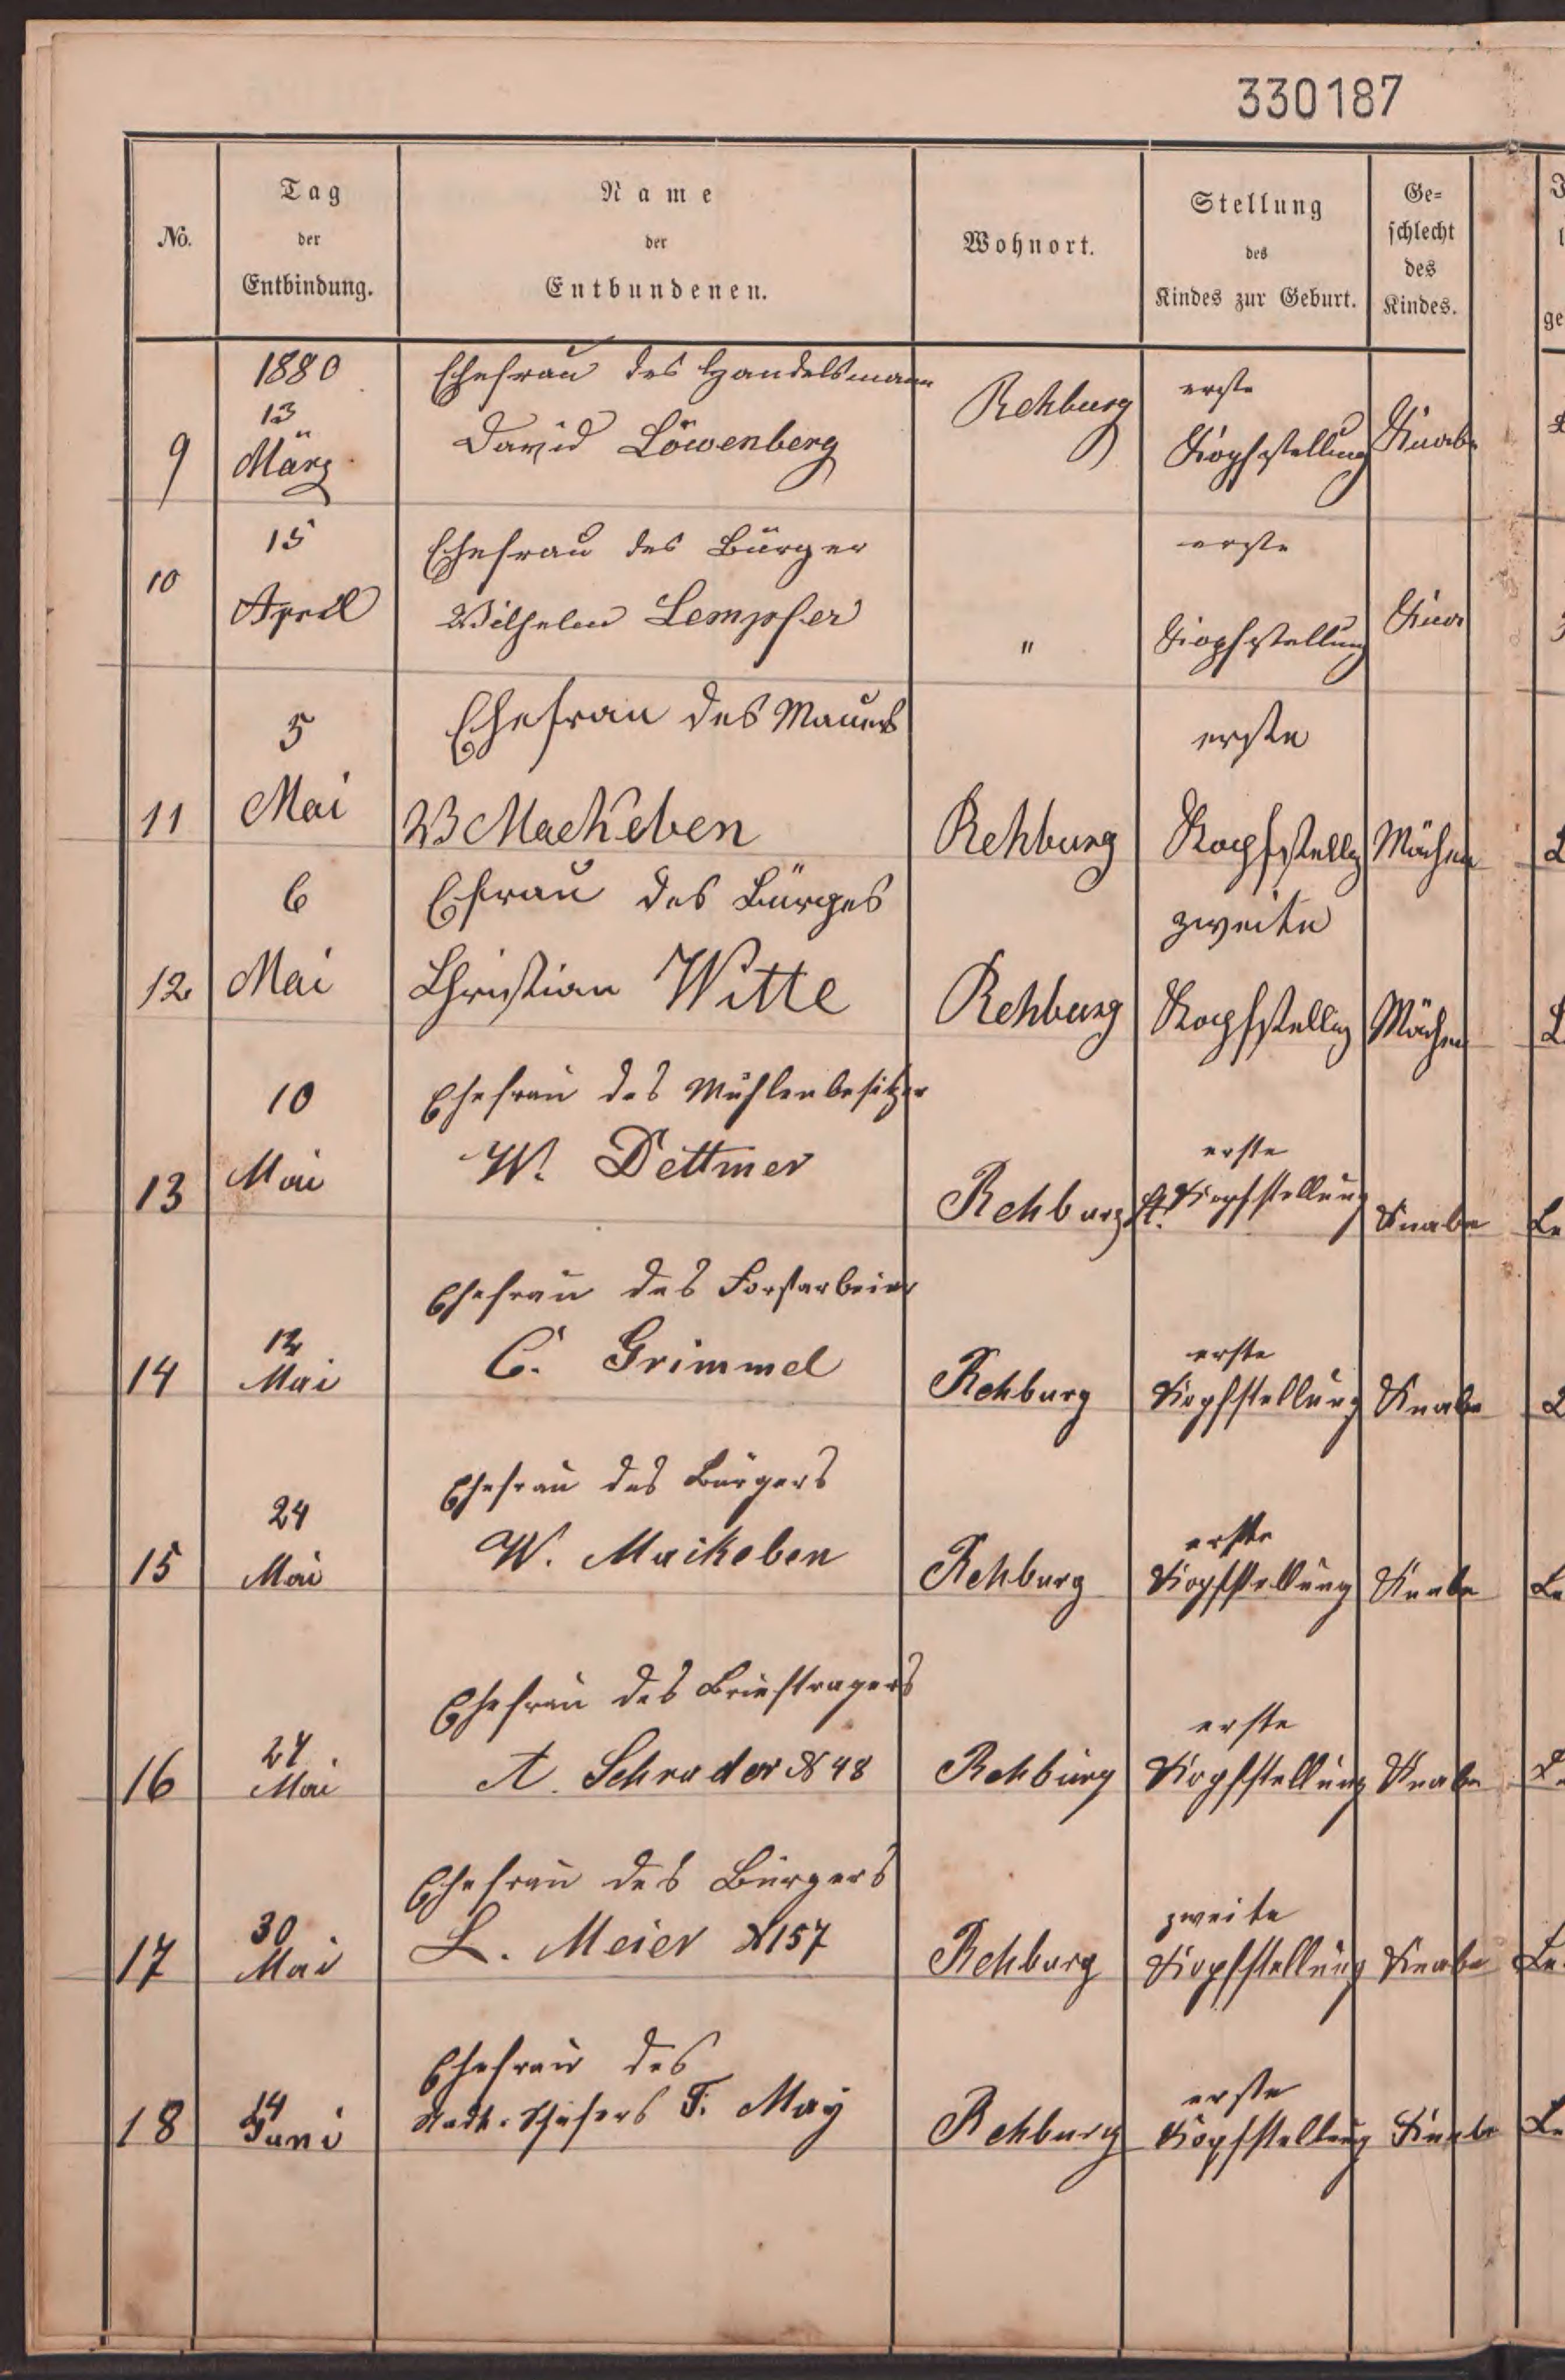 330187
No.
Tag
der
Entbindung.
Name
der
Entbundenen.
Wohnort.
Stellung
des
Kindes zur Geburt.
Ge=
schlecht
des
Kindes.
1880
13
März
9
Ehefrau des Handelsmann
David Löwenberg
Rehburg
erste
Kopfstellung
Knabe
15
April
10
Ehefrau des Bürger
Wilhelm Lempfer
"
erste
Kopfstellung
5
Mai
11
Ehefrau des Maurers
W Mackeben
Rehburg
erste
Kopfstellg
Mächen
6
Mai
12
Efrau des Bürges
Christian Witte
Rehburg
zweite
Kopfstellg
Mächen
10
Mai
13
Ehefrau des Mühlenbesitzer
W. Dettmer
Rehburg
erste
Kopfstellung
Knabe
12
Mai
14
Ehefrau des Forstarbeier
C. Grimmel
Rehburg
erste
Kopfstellung
Knabe
24
Mai
15
Ehefrau des Bürgers
W. Maikeben
Rehburg
erste
Kopfstellung
Knabe
27
Mai
16
Ehefrau des Briefträgers
A. Schrader № 48
Rehburg
erste
Kopfstellung
Knabe
30
Mai
17
Ehefrau des Bürgers
L. Meier № 157
Rehburg
zweite
Kopfstellung
Knabe
14
Juni
18
Ehefrau des
Stadt-Schäfers F. May
Rehburg
erste
Kopfstellung
Knabe